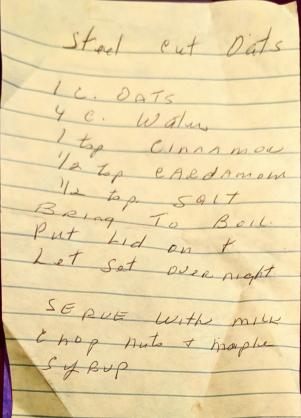 Steel cut Oats
1 c. OATS
4 c. Water
1 tsp CINNAMON
1/2 tsp CARDAMOM
1/2 tsp SALT
BRING TO BOIL.
Put Lid on +
Let Set overnight
SERVE WITH MILK
Chop nuts + maple
SYRUP